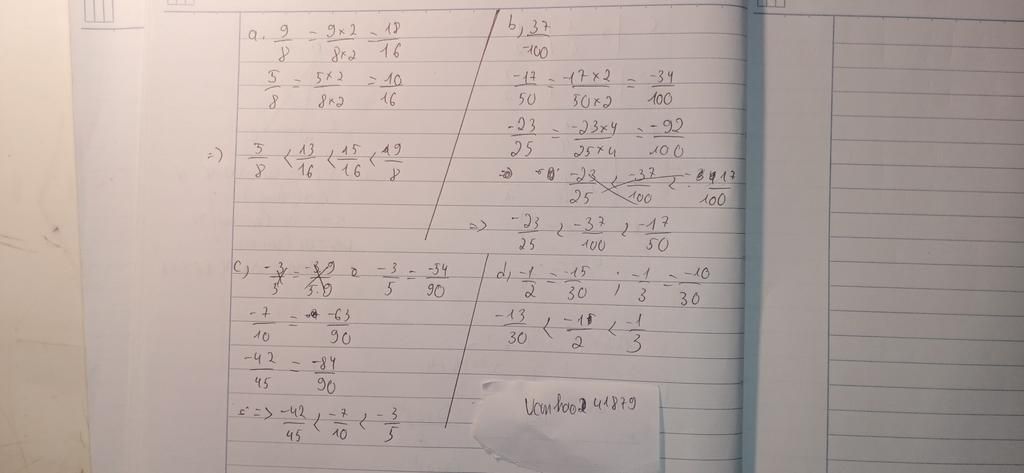 a. 9/8 = 9×2/8×2 = 18/16
5/8 = 5×2/8×2 = 10/16
=) 5/8 < 13/16 < 15/16 < 9/8
b, 37/100
-17/50 = -17×2/50×2 = -34/100
-23/25 = -23×4/25×4 = -92/100
-23/25 < -37/100 < 17/100
=> -23/25 < -37/100 < -17/50
c, -3/5 = -3.9/5.9 -3/5 = -54/90
-7/10 = -63/90
-42/45 = -84/90
=> -42/45 < -7/10 < -3/5
d, -1/2 = -15/30 ; -1/3 = -10/30
-13/30 < -1/2 < -1/3
Vanhao 41879